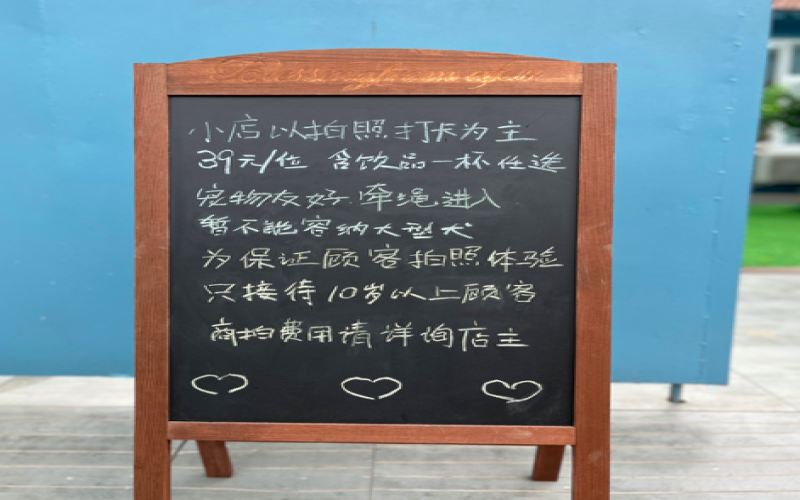 小店以拍照打卡为主
39元/位 含饮品一杯任选
宠物友好.牵绳进入
暂不能容纳大型犬
为保证顾客拍照体验
只接待10岁以上顾客
商拍费用请详询店主